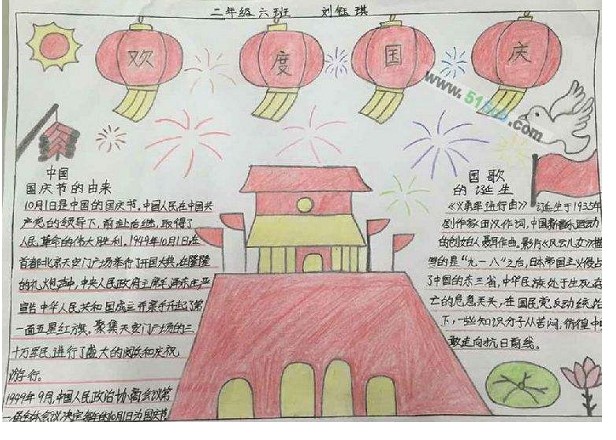 二年级六班 刘钰琪
欢度国庆
www.51
.com
中国
国庆节的由来
10月1日是中国的国庆节,中国人民在中国共
产党的领导下,前赴后继,取得了
人民革命的伟大胜利,1949年10月1日,在
首都北京天安门广场举行了开国大典,在隆隆
的礼炮声中,中央人民政府主席毛泽东庄严
宣告中华人民共和国成立并亲手升起了第
一面五星红旗,聚集天安门广场的三
十万军民,进行了盛大的阅兵和庆祝
游行。
1949年9月,中国人民政治协商会议第
一届全体会议决定
日为国庆节
国歌
的诞生
《义勇军进行曲》诞生于1935年
创作者田汉作词,中国新音乐运动
的创始人聂耳作曲,影片《风云儿女》
的是“九一八”之后,日本帝国主义侵占
了中国的东三省,中华民族处于生死存
亡的危急关头,在国民党反动统治
下,一些知识分子从苦闷、彷徨中
敢走向抗日前线。